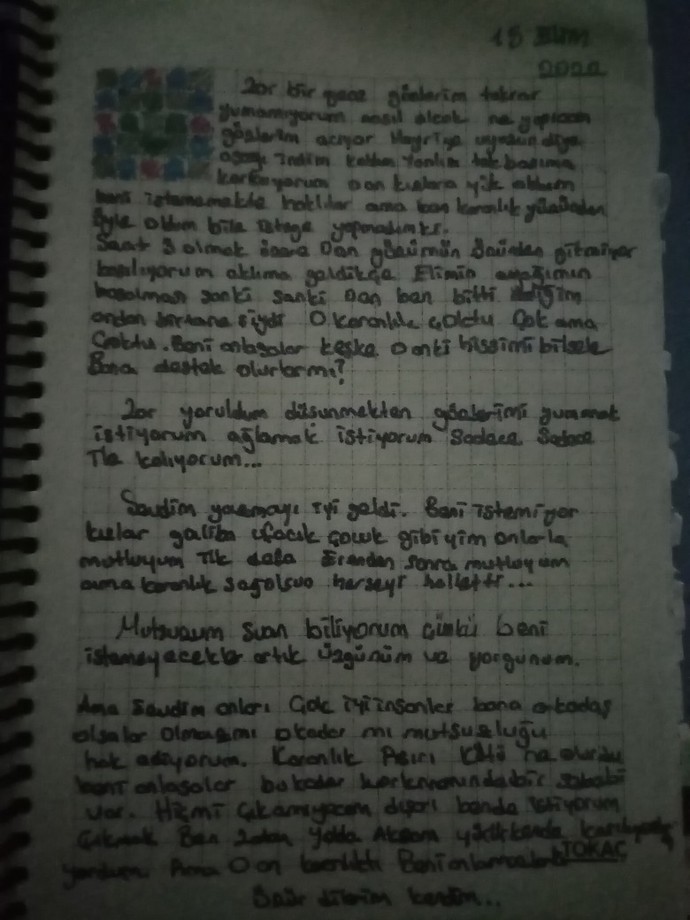 15 Ekim
2022
Zor bir gece gözlerim tekrar
yumamıyorum nasıl olcak ne yapıcam
gözlerim acıyor Hayriye uyusun diye
aşağı indim kalktım Yanlım tek başıma
korkuyorum O an kızlara yük oldum
beni istememekte haklılar ama ben karanlık yüzünden
öyle oldum bile isteye yapmadımki.
Saat 3 olmak üzere O an gözümün önünden gitmiyor
kasılıyorum aklıma geldikçe Elimin ayağımın
boşalması sanki sanki O an ben bitti dediğim
andan bir tane siydi O karanlık çöldü Çok ama
Çoktu. Beni anlasalar keşke O anki hissimi bilsele
Bana destek olurlarmı?
Zor yoruldum düşünmekten gözlerimi yummak
istiyorum ağlamak istiyorum Sadece Sadece
İle kalıyorum...
Sevdim yazmayı iyi geldi. Beni istemiyor
kızlar galiba ufacık çocuk gibiyim onlarla
mutluyum ilk defa Erenden sonra mutluyum
ama karanlık sağolsun herşeyi halletti...
Mutsuzum Şuan biliyorum Çünkü beni
istemeyecekler artık üzgünüm ve yorgunum.
Ama Sevdim onları Çok iyi insanlar bana arkadaş
olsalar olmazmı okadar mı mutsuzluğu
hak ediyorum. Karanlık Aşırı Kötü ne olurdu
beni anlasalar bu kadar korkmamındabir sebebi
var. Hiçmi Çıkamıyacam dışarı bende istiyorum
Çıkmak Ben Zaten Yolda Akşam
yordum. Ama O an karanlıktı Beni anlamadılar
TOKAÇ
Özür dilerim kendim...